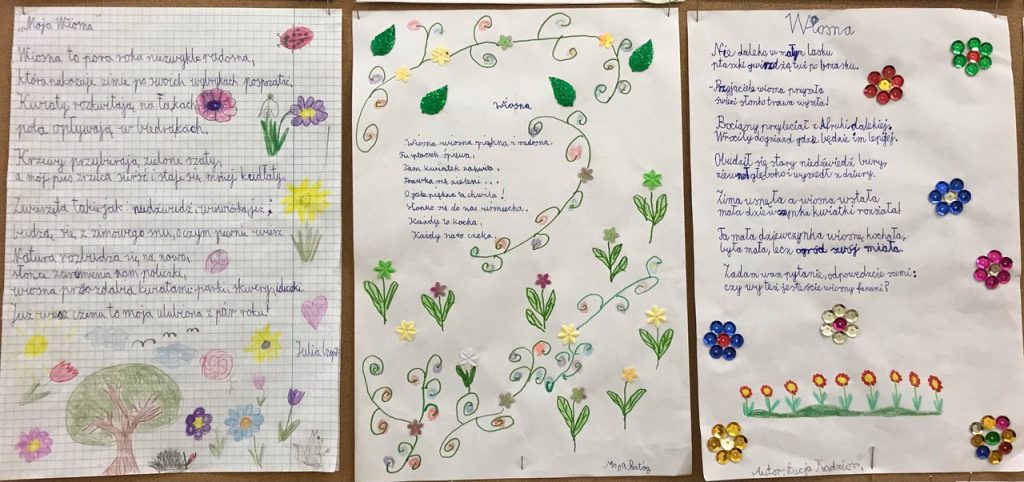 „Moja Wiosna”
Wiosna to pora roku niezwykle radosna,
która nakazuje zimie po swoich wybrykach posprzątać.
Kwiaty rozkwitają na łąkach
pola opływają w biedronkach.
Krzewy przybierają zielone szaty,
a mój pies zrzuca sierść i staje się mniej kudłaty.
Zwierzęta takie jak: niedźwiedź, wiewiórka, jeż;
budzą się z zimowego snu, o czym pewnie wiesz.
Natura rozbudza się na nowo,
słońce zarumienia nam policzki,
wiosna przyozdabia kwiatami parki, skwery,
Już wiesz czemu to moja ulubiona z pór roku!
Julia
Wiosna
Wiosna-wiosna piękna i radosna.
Tu ptaszek śpiewa,
Tam kwiatek zakwita.
Trawka się zieleni...
O jaka piękna ta chwila!
Słonko się do nas uśmiecha.
Każdy to kocha,
Każdy na to czeka.
Maja
Wiosna
Nie daleko w małym lasku
ptaszki gwiżdżą tuż po brzasku.
-Przyjaciele wiosna przyszła
świeci słonko trawa wyszła!
Bociany przyleciał z Afryki dalekiej.
Wróciły do gniazd gdzie będzie im lepiej.
Obudził się stary niedźwiedź bury,
ziewnął głęboko i wyszedł z dziury.
Zima usnęła a wiosna wstała
mała dziewczynka kwiatki rozsiała!
Ta mała dziewczynka wiosnę kochała,
była mała, lecz ogród swój miała.
Zadam wam pytanie, odpowiedzcie sami:
czy wy też jesteście wiosny fanami?
Autor: Łucja Kadzior.